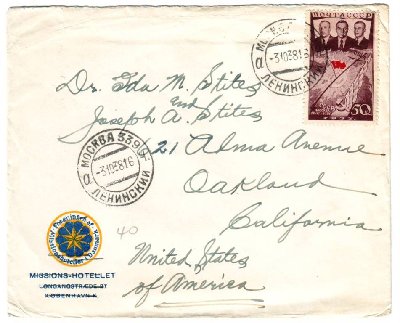 ПОЧТА СССР
МОСКВА
-3.10.38.16
ЛЕНИНСКИЙ
50
Dr. Ida M. Stites
and
Joseph A. Stites
21 Alma Avenue
Oakland
California
United States
of America
МОСКВА 539
-3.10.38.16
ЛЕНИНСКИЙ
40
MISSIONS-HOTELLET
LONGANGSTRÆDE 27
KØBENHAVN K.